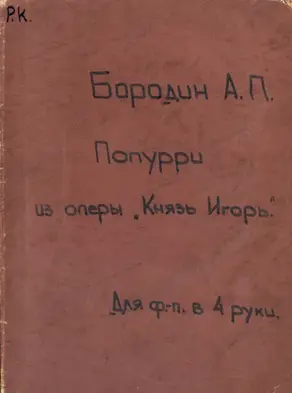 Р.К.
Бородин А.П.
Попурри
из оперы „Князь Игорь."
Для ф.-п. в 4 руки.